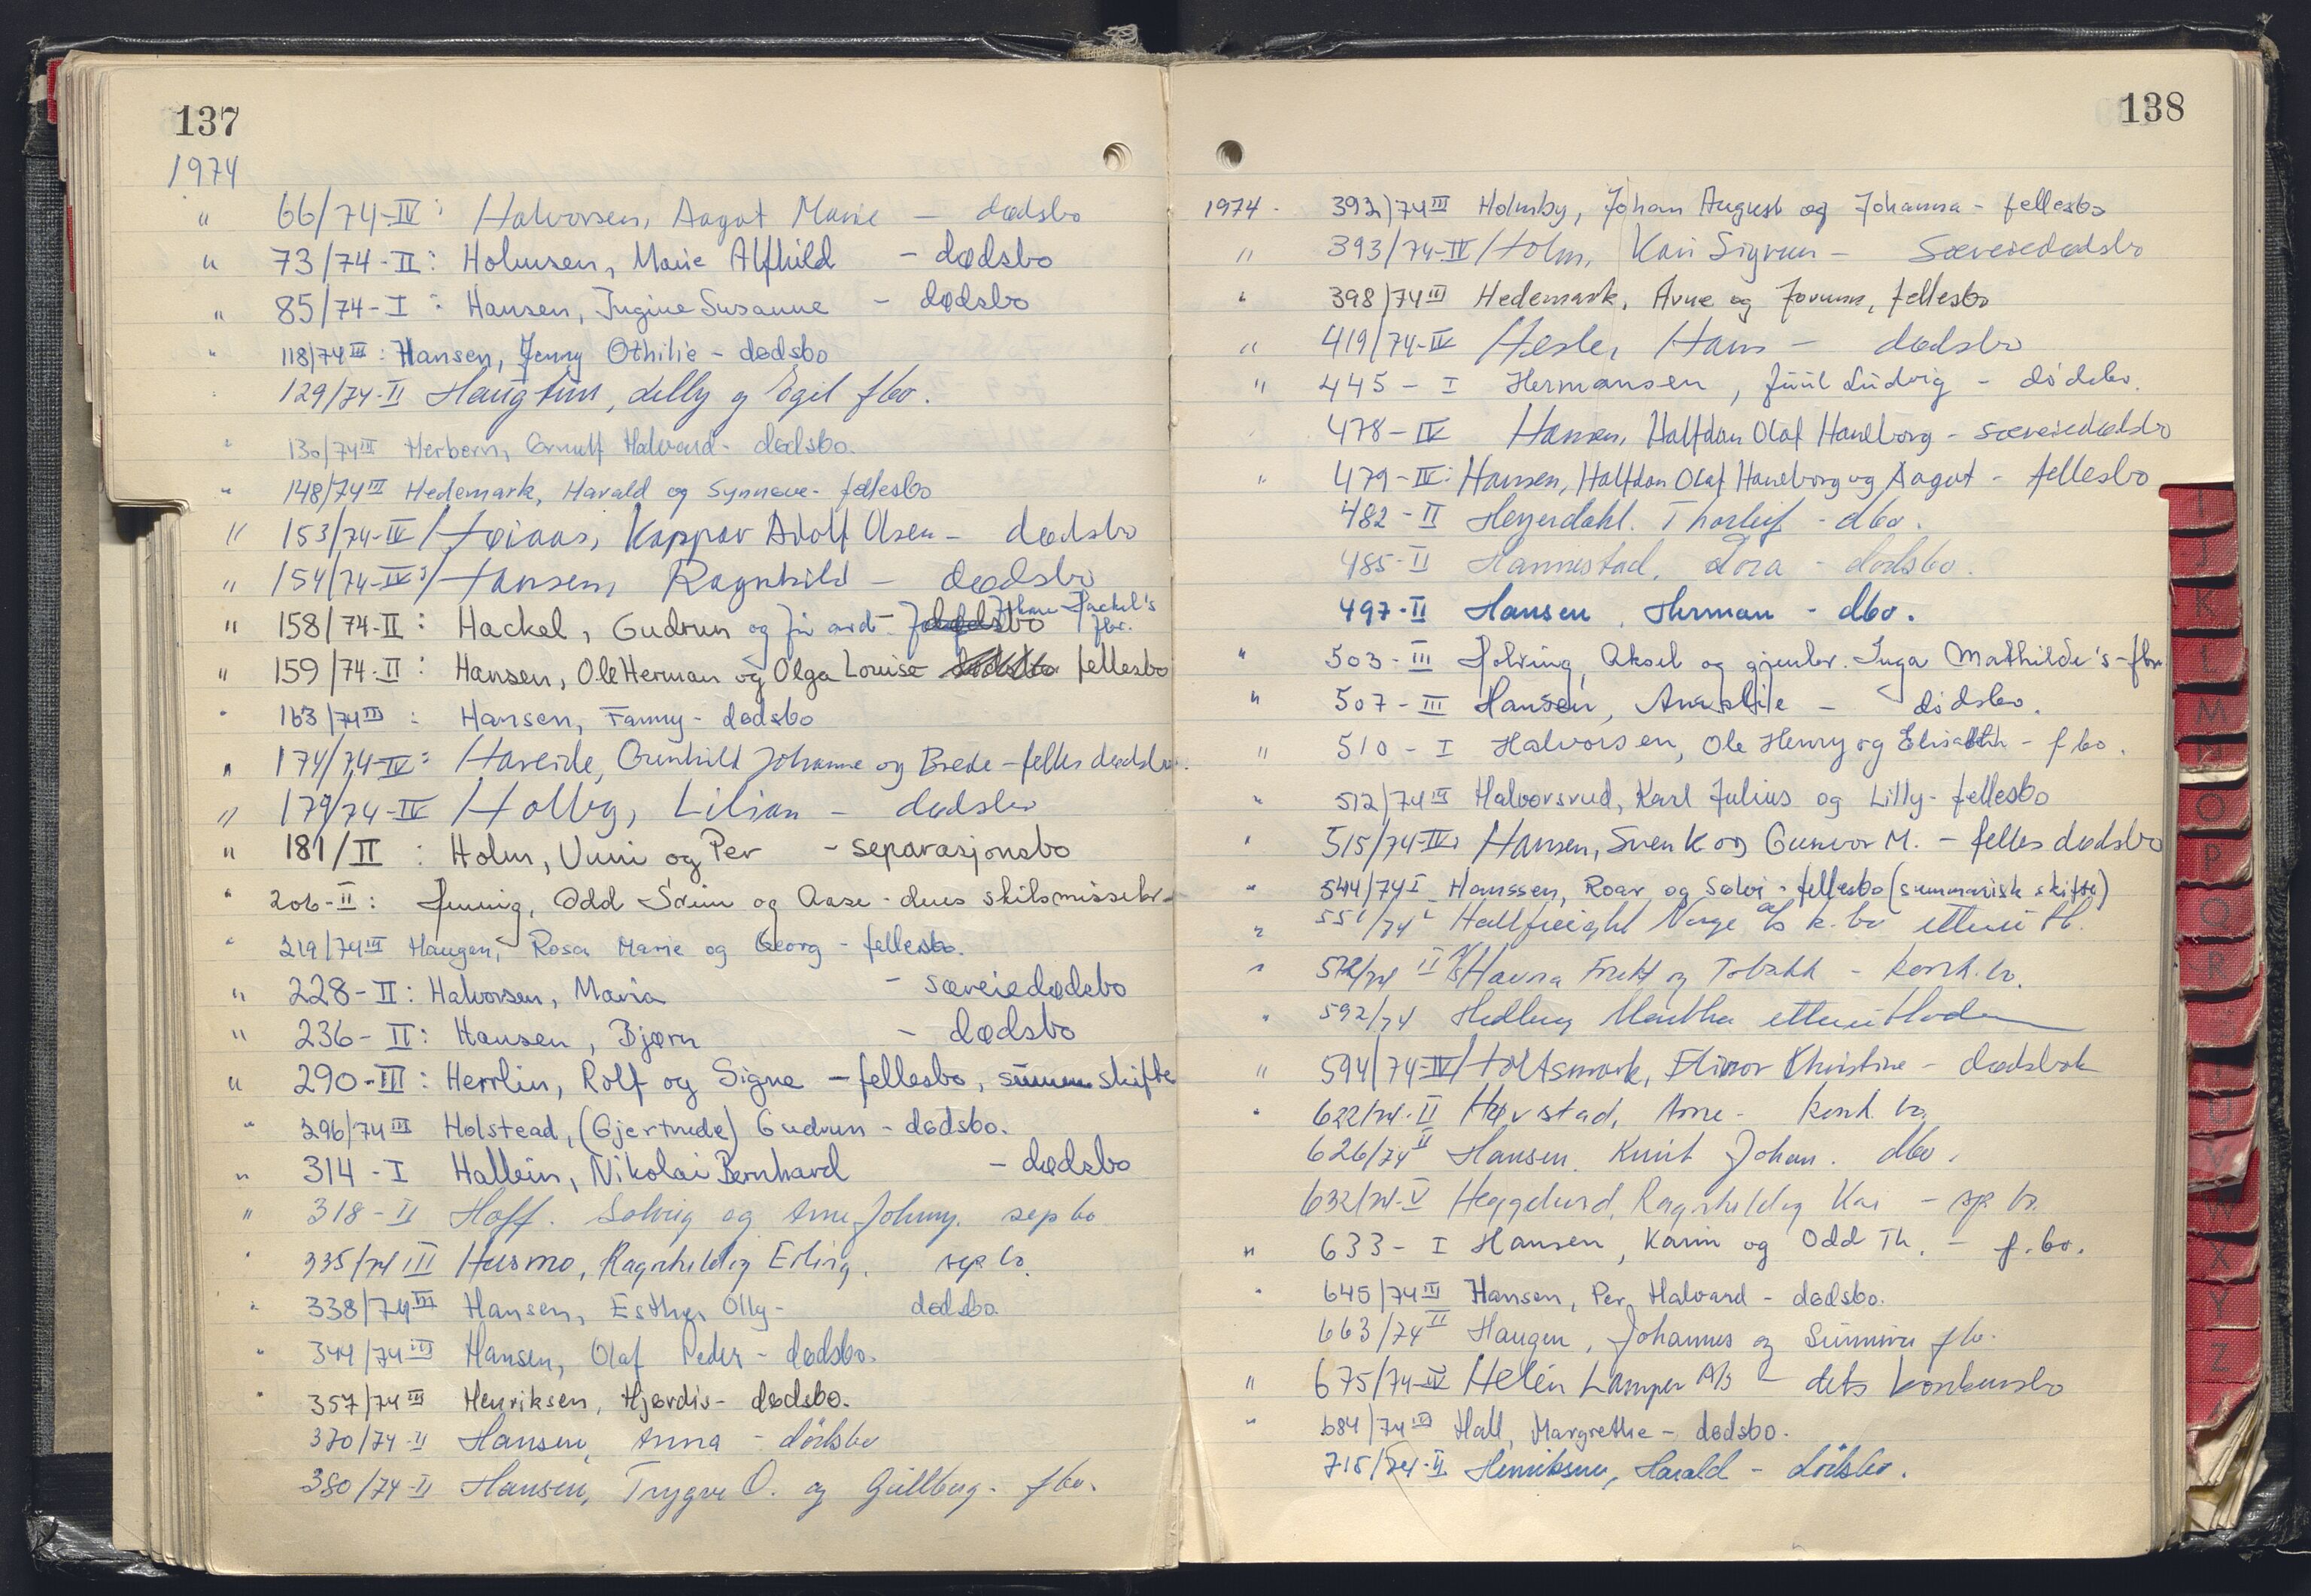 137
1974
" 66/74-IV: Halvorsen, Aagot Marie - dødsbo
" 73/74-II: Holmsen, Marie Alfhild - dødsbo
" 85/74-I: Hansen, Ingine Susanne - dødsbo
" 118/74 III: Hansen, Jenny Othilie - dødsbo
129/74-II Haugtun, Lilly og Egil fbo.
" 130/74 III Herbern, Ørnulf Halvard - dødsbo.
" 148/74 III Hedemark, Harald og Synnøve - fellesbo
" 153/74-IV Høiaas, Kaspar Adolf Olsen - dødsbo
" 154/74-IV: Hansen, Ragnhild - dødsbo
" 158/74-II: Hackel, Gudrun og Johan Hackel's fbo.
" 159/74-II: Hansen, Ole Herman og Olga Louise dødsbo fellesbo
" 163/74 III: Hansen, Fanny - dødsbo
" 174/74-IV: Hareide, Gunhild Johanne og Brede - felles dødsbo.
" 179/74-IV Holby, Lilian - dødsbo
" 181/II: Holm, Unni og Per - separasjonsbo
" 206-II: Hennig, Odd og Aase - deres skilsmissebo
" 219/74 III Haugen, Rosa Marie og Georg - fellesbo.
" 228-II: Halvorsen, Maria - særeiedødsbo
" 236-II: Hansen, Bjørn - dødsbo
" 290-III: Herrlin, Rolf og Signe - fellesbo, summ skifte
" 296/74 III Holstead, (Gjertrude) Gudrun - dødsbo.
" 314-I Hallein, Nikolai Bernhard - dødsbo
" 318-II Hoff. Solveig og Arne Johnny. sep bo
" 335/74 III Husmo, Ragnhild og Erling. sep. bo.
" 338/74 III Hansen, Esther Olly - dødsbo
" 344/74 III Hansen, Olaf Peder - dødsbo.
" 357/74 III Henriksen, Hjørdis - dødsbo.
370/74-II Hansen, Anna - dödsbo
380/74-II Hansen, Trygve O. og Gullborg - fbo.
138
1974 - 392/74 III Holmby, Johan August og Johanna - fellesbo
" 393/74-IV Holm, Kari Sigrun - Særeiedødsbo
" 398/74 III Hedemark, Arne og Jorunn, fellesbo
" 419/74-IV Hesler, Hans - dødsbo
" 445 - I Hermansen, Juul Ludvig - dødsbo.
478-IV Hansen, Halfdan Olaf Haneborg - særeiedødsbo
" 479-IV: Hansen, Halfdan Olaf Haneborg og Aagot - fellesbo
482-II Heyerdahl. Thorleif - dbo.
485-II Hannestad, Dora - dødsbo.
497-II Hansen, Herman - dbo.
" 503-III Holving, Aksel og gjenlev. Inga Mathilde's - fbo
" 507-III Hansen, Amalie - dødsbo.
" 510 - I Halvorsen, Ole Henry og Elisabeth - fbo.
" 512/74 III Halvorsrud, Karl Julius og Lilly - fellesbo
" 515/74-IV: Hansen, Svenk og Gunvor M. - felles dødsbo
" 544/74 I Hanssen, Roar og Sølvi - fellesbo (summarisk skifte)
" 551/74 I Hallfreight Norge A/S k.bo etterutl.
" 572/74 II A/S Havna Frukt og Tobakk - konk.bo.
" 592/74 Hedberg Martha
" 594/74-IV Holtsmark, Ellinor Christine - dødsbo
" 622/74-II Høvstad, Arne - konk. bo.
626/74 II Hansen. Knut Johan. dbo.
632/74-V Heggelund, Ragnhild og Kai - sp. bo.
" 633 - I Hansen, Karin og Odd Th. - f.bo.
" 645/74 III Hansen, Per Halvard - dødsbo.
663/74 II Haugen, Johannes og Sunniva fbo.
" 675/74-IV Helén Lamper A/S - dets konkursbo
" 684/74 III Hall, Margrethe - dødsbo.
715/74-II Henriksen, Harald - dödsbo.
I
J
K
L
M
N
O
P
Q
R
U
V
W
X
Y
Z